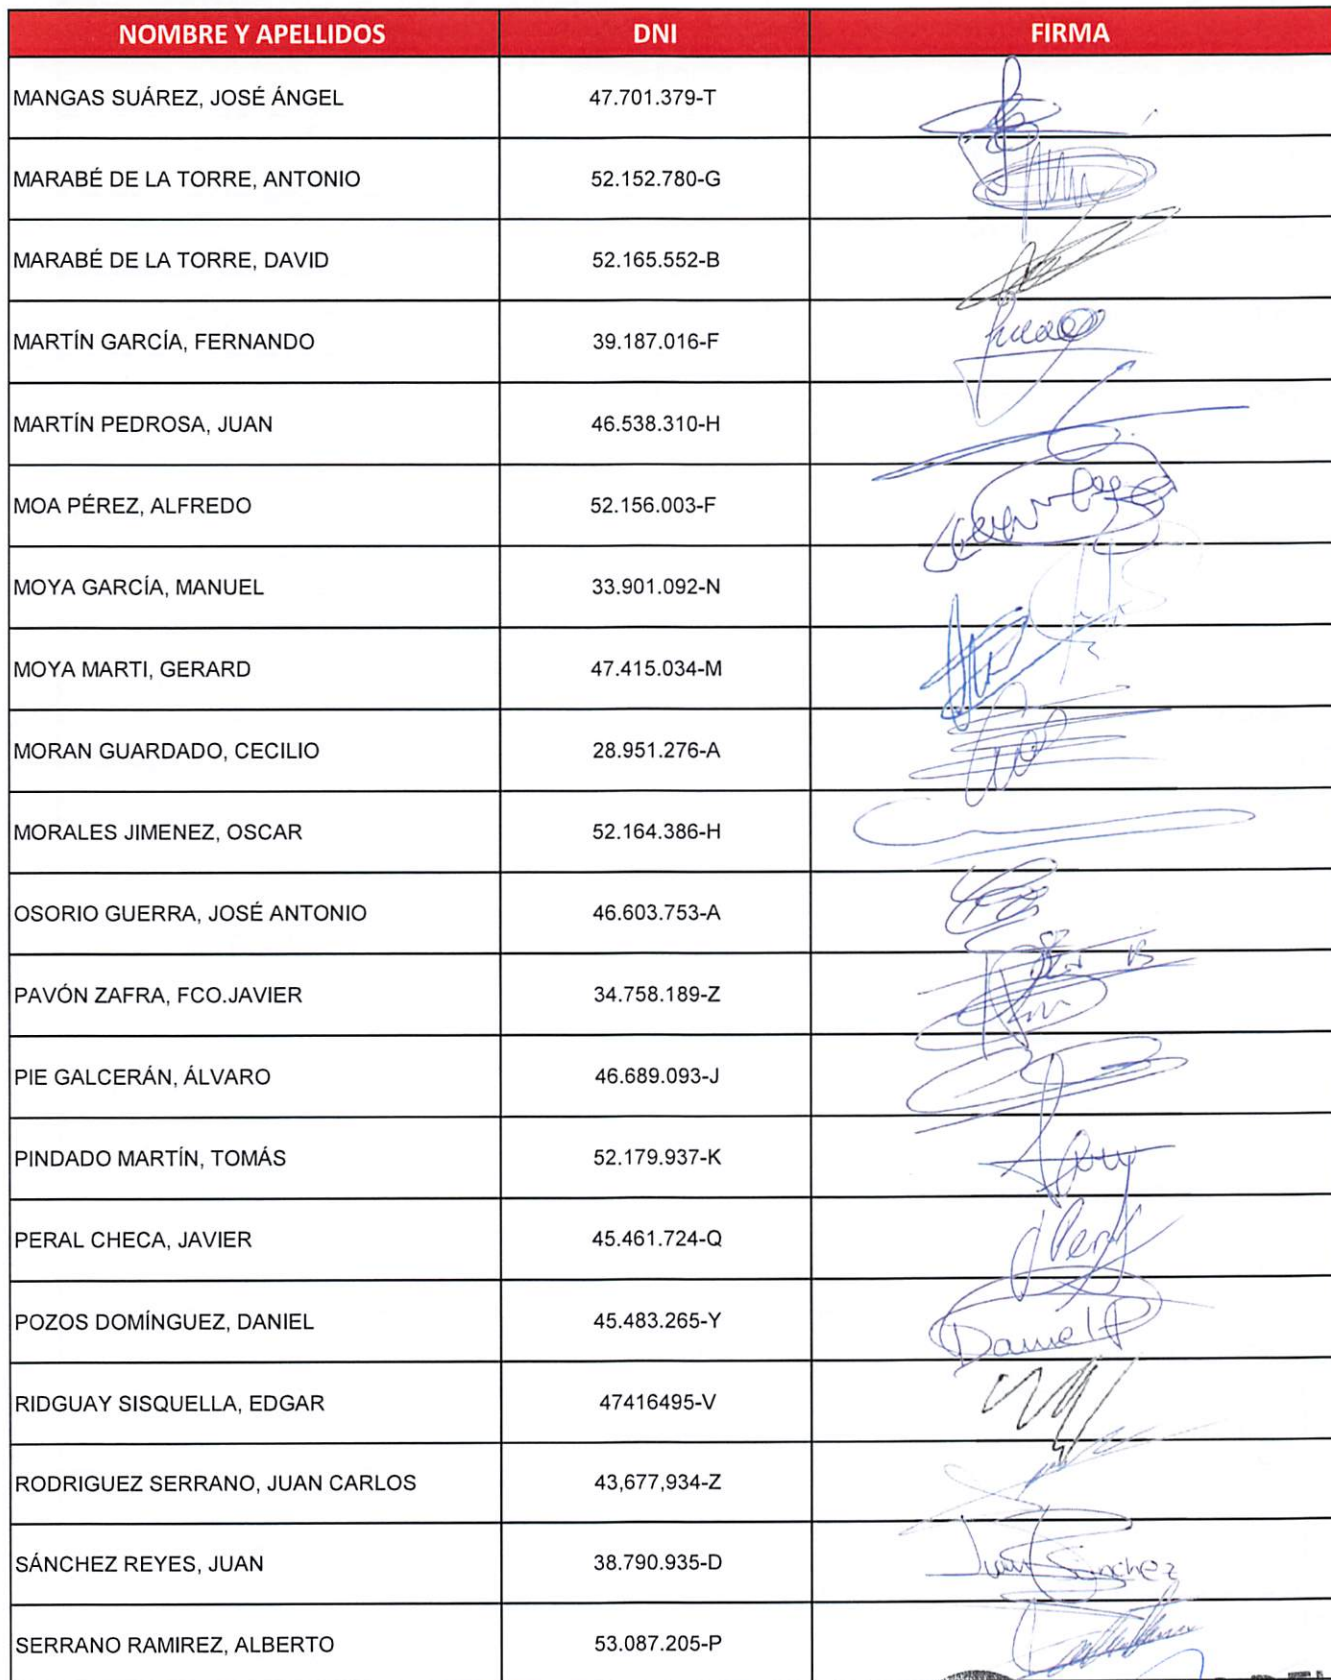 NOMBRE Y APELLIDOS DNI FIRMA
MANGAS SUÁREZ, JOSÉ ÁNGEL 47.701.379-T
MARABÉ DE LA TORRE, ANTONIO 52.152.780-G
MARABÉ DE LA TORRE, DAVID 52.165.552-B
MARTÍN GARCÍA, FERNANDO 39.187.016-F
MARTÍN PEDROSA, JUAN 46.538.310-H
MOA PÉREZ, ALFREDO 52.156.003-F
MOYA GARCÍA, MANUEL 33.901.092-N
MOYA MARTI, GERARD 47.415.034-M
MORAN GUARDADO, CECILIO 28.951.276-A
MORALES JIMENEZ, OSCAR 52.164.386-H
OSORIO GUERRA, JOSÉ ANTONIO 46.603.753-A
PAVÓN ZAFRA, FCO.JAVIER 34.758.189-Z
PIE GALCERÁN, ÁLVARO 46.689.093-J
PINDADO MARTÍN, TOMÁS 52.179.937-K
PERAL CHECA, JAVIER 45.461.724-Q
POZOS DOMÍNGUEZ, DANIEL 45.483.265-Y Daniel P
RIDGUAY SISQUELLA, EDGAR 47416495-V
RODRIGUEZ SERRANO, JUAN CARLOS 43,677,934-Z
SÁNCHEZ REYES, JUAN 38.790.935-D Juan Sánchez
SERRANO RAMIREZ, ALBERTO 53.087.205-P